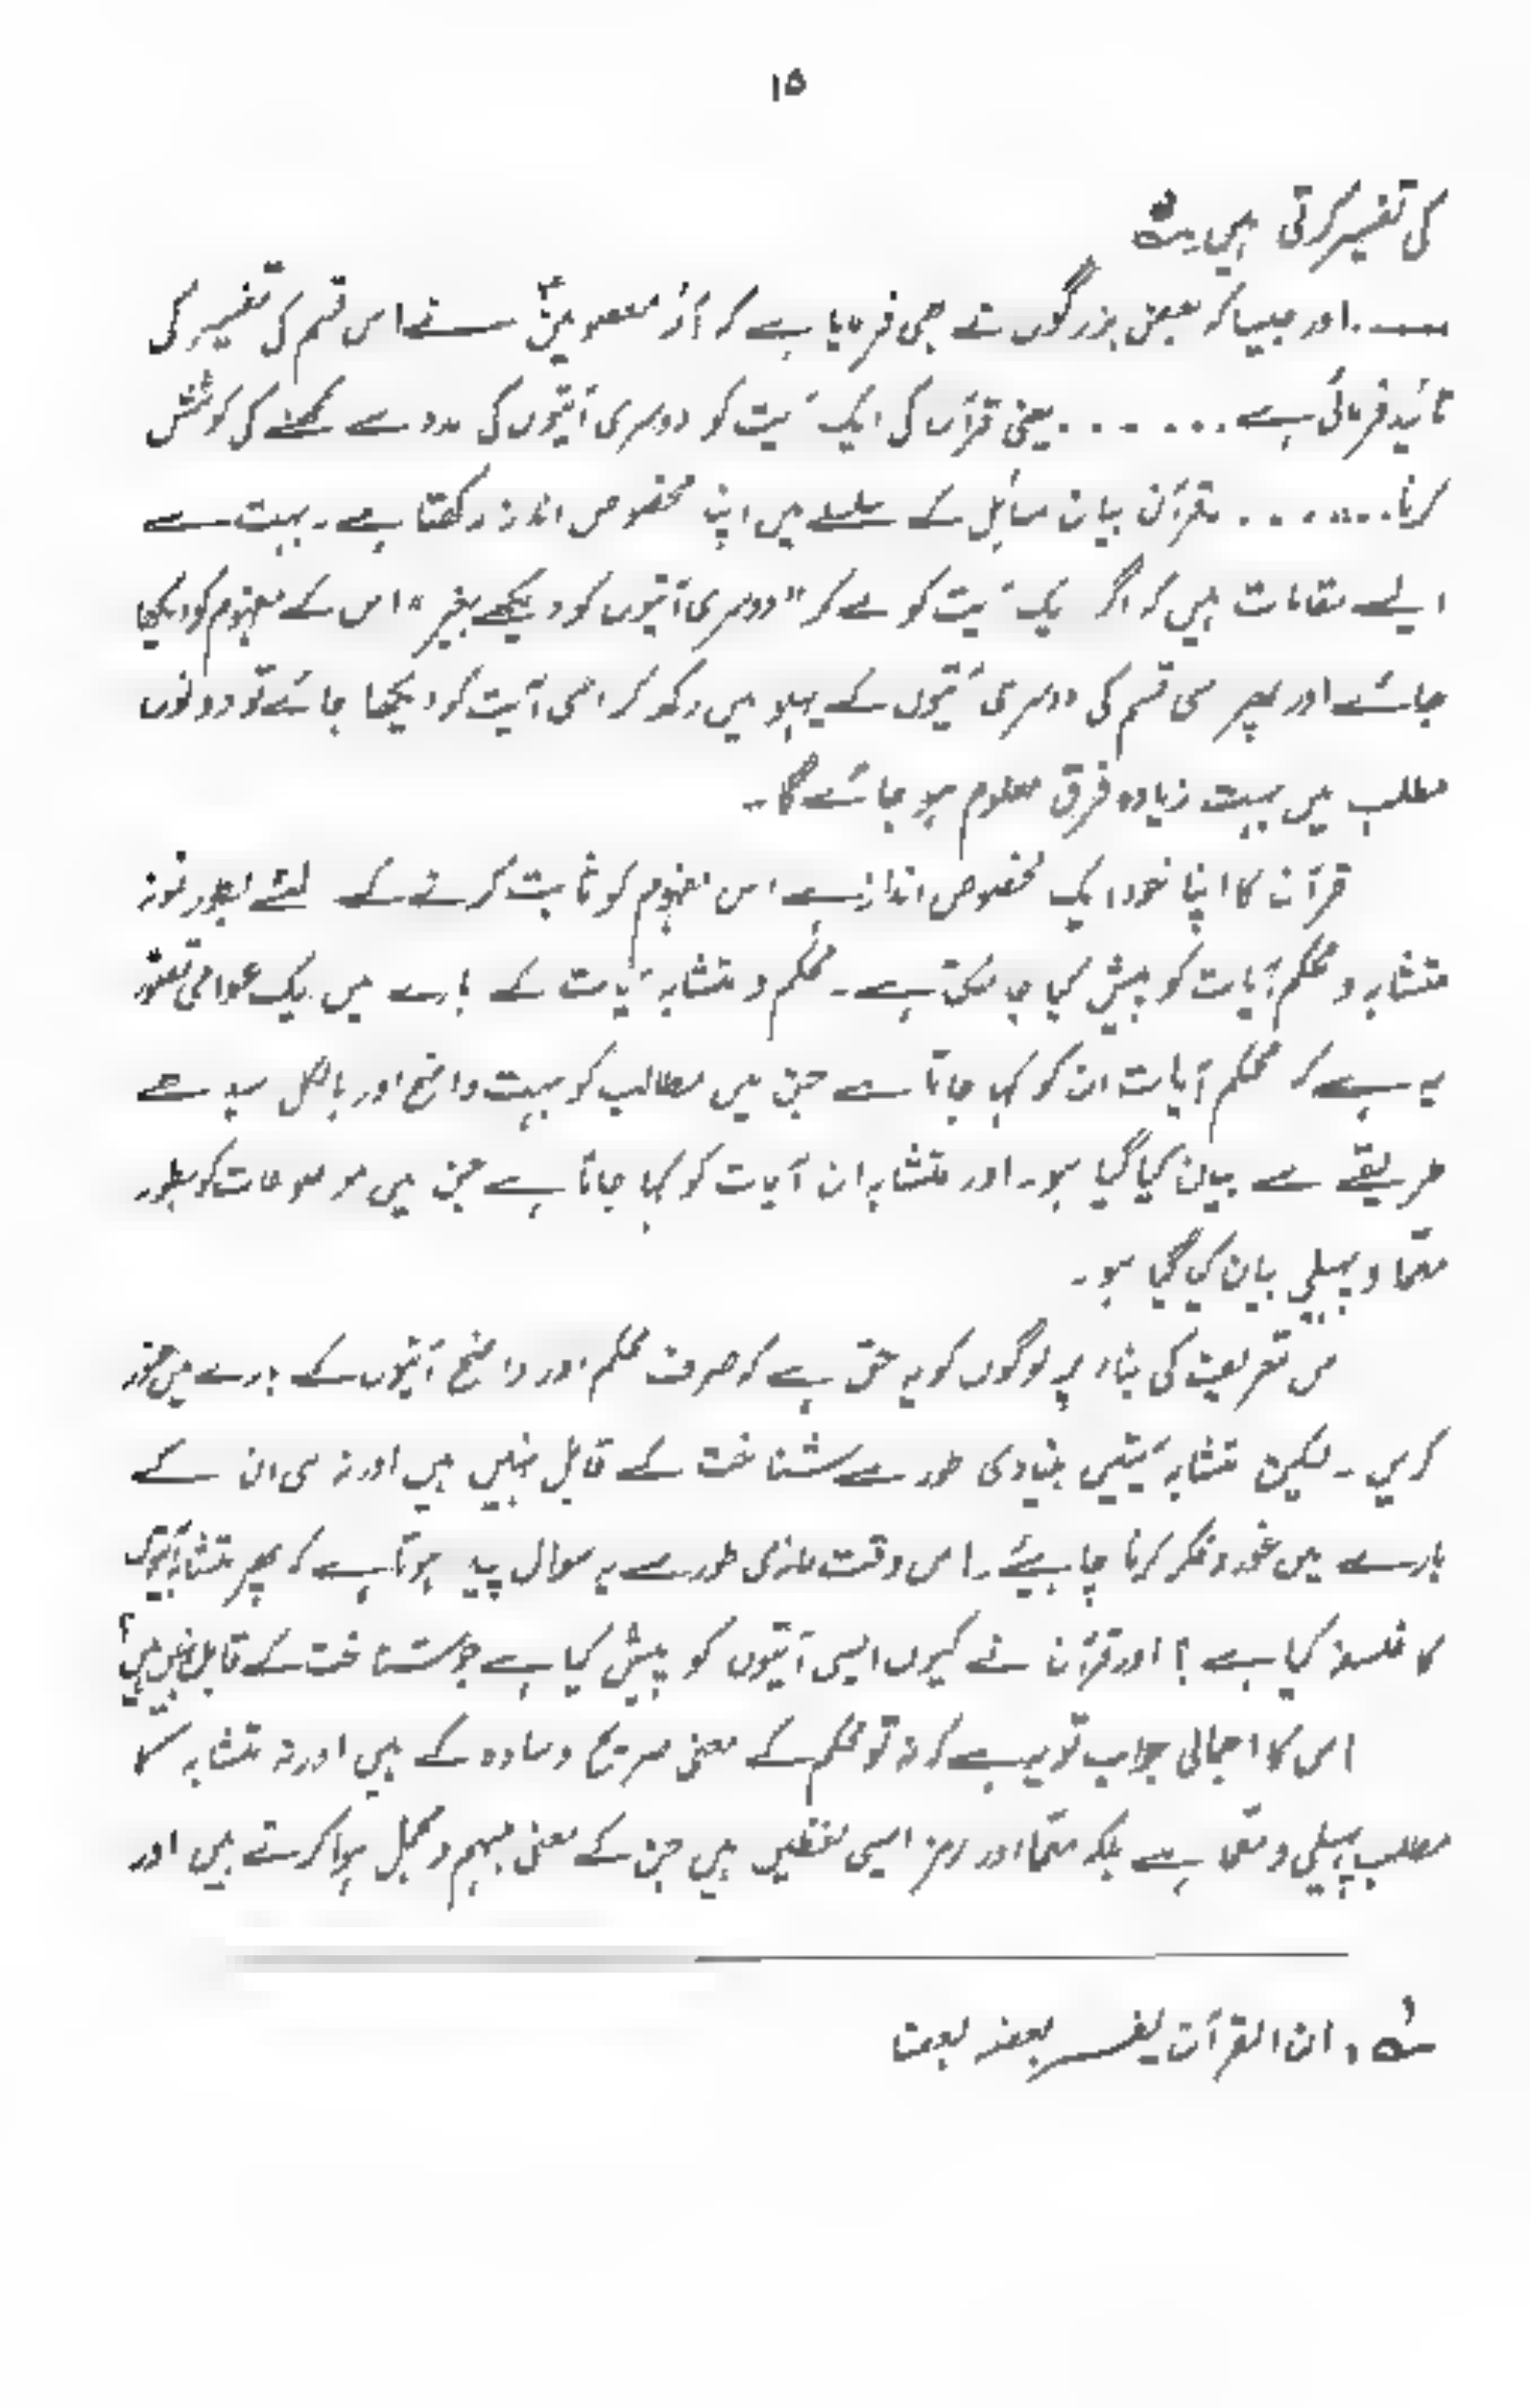 ۱۵
کی تفسیر کرتی ہیں۔
اور جیسا کہ بعض بزرگوں نے بھی فرمایا ہے کہ ائمہ معصومینؑ نے اس قسم کی تفسیر کی
تائید فرمائی ہے ....... یعنی قرآن کی ایک آیت کو دوسری آیتوں کی مدد سے سمجھنے کی کوشش
کرنا ....... قرآن بیان مسائل کے سلسلے میں اپنا مخصوص انداز رکھتا ہے۔ بہت سے
ایسے مقامات ہیں کہ اگر ایک آیت کو لے کر "دوسری آیتوں کو دیکھے بغیر" اس کے مفہوم کو دیکھا
جائے اور پھر اسی قسم کی دوسری آیتوں کے پہلو میں رکھ کر اسی آیت کو دیکھا جائے تو دونوں
مطلب میں بہت زیادہ فرق معلوم ہو جائے گا۔
قرآن کا اپنا خود ایک مخصوص انداز ہے اس مفہوم کو ثابت کرنے کے لئے بطور نمونہ
متشابہ و محکم آیات کو پیش کیا جا سکتا ہے۔ محکم و متشابہ آیات کے بارے میں ایک عوامی تصور
یہ ہے کہ محکم آیات ان کو کہا جاتا ہے جن میں مطالب کو بہت واضح اور بالکل سیدھے
طریقے سے بیان کیا گیا ہو۔ اور متشابہ ان آیات کو کہا جاتا ہے جن میں موضوعات کو بطور
معمّا و پہیلی بیان کیا گیا ہو۔
اس تعریف کی بناء پر لوگوں کو یہ حق ہے کہ صرف محکم اور واضح آیتوں کے بارے میں غور
کریں۔ لیکن متشابہ آیتیں بنیادی طور سے شناخت کے قابل نہیں ہیں اور نہ ہی ان کے
بارے میں غور و فکر کرنا چاہیئے۔ اس وقت لازمی طور سے یہ سوال پیدا ہوتا ہے کہ پھر متشابہ آیتوں
کا فلسفہ کیا ہے؟ اور قرآن نے کیوں ایسی آیتوں کو پیش کیا ہے جو شناخت کے قابل نہیں ہیں؟
اس کا اجمالی جواب تو یہ ہے کہ نہ تو محکم کے معنی صریح و سادہ کے ہیں اور نہ متشابہ کا
مطلب پہیلی و معّما ہے بلکہ معّما اور رمز ایسی لفظیں ہیں جن کے معنی مبہم و مجمل ہوا کرتے ہیں اور
ان القرآن یفسر بعضہ بعضا